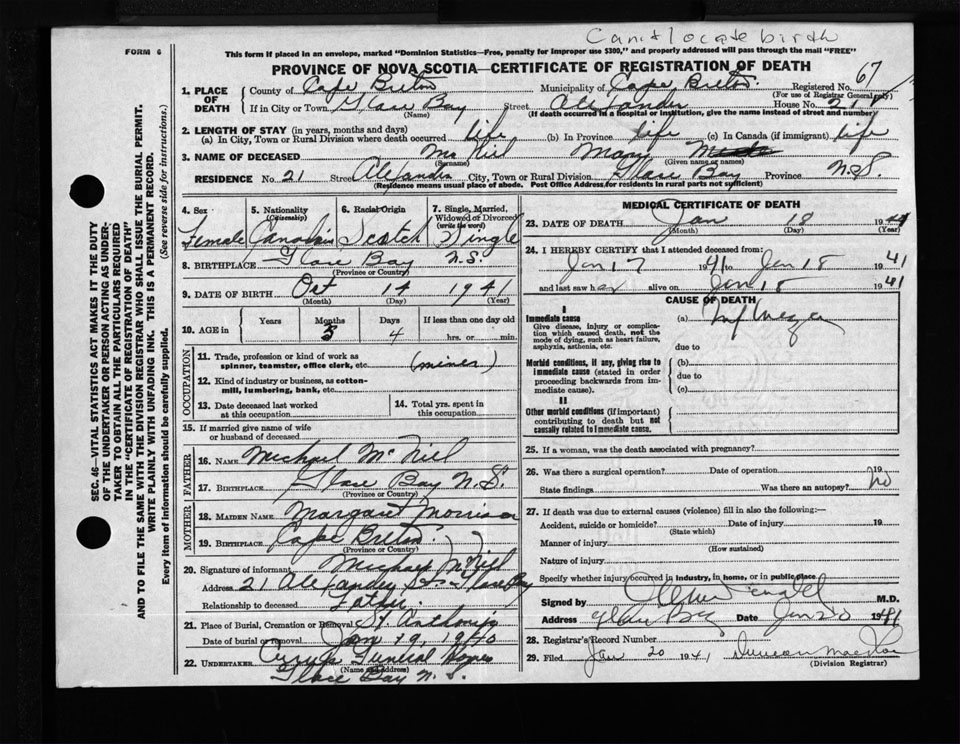 Can't locate birth
FORM 6
This form if placed in an envelope, marked "Dominion Statistics—Free, penalty for improper use $300," and properly addressed will pass through the mail "FREE"
PROVINCE OF NOVA SCOTIA—CERTIFICATE OF REGISTRATION OF DEATH
67
1. PLACE OF DEATH
County of Cape Breton Municipality of Cape Breton Registered No.
(For use of Registrar General only)
If in City or Town Glace Bay Street Alexander House No. 21
(Name) (If death occurred in a hospital or institution, give the name instead of street and number)
2. LENGTH OF STAY (in years, months and days)
(a) In City, Town or Rural Division where death occurred life (b) In Province life (c) In Canada (if immigrant) life
3. NAME OF DECEASED McNiel Mary
(Surname) (Given name or names)
RESIDENCE No. 21 Street Alexander City, Town or Rural Division Glace Bay Province N.S.
(Residence means usual place of abode. Post Office Address for residents in rural parts not sufficient)
4. Sex Female
5. Nationality (Citizenship) Canadian
6. Racial Origin Scotch
7. Single, Married, Widowed or Divorced (write the word) Single
8. BIRTHPLACE Glace Bay N.S.
(Province or Country)
9. DATE OF BIRTH Oct 14 1941
(Month) (Day) (Year)
10. AGE in Years Months Days If less than one day old
3 4 hrs. or min.
OCCUPATION
11. Trade, profession or kind of work as spinner, teamster, office clerk, etc. (miner)
12. Kind of industry or business, as cotton-mill, lumbering, bank, etc.
13. Date deceased last worked at this occupation
14. Total yrs. spent in this occupation
15. If married give name of wife or husband of deceased
FATHER
16. NAME Michael McNiel
17. BIRTHPLACE Glace Bay N.S.
(Province or Country)
MOTHER
18. MAIDEN NAME Margaret
19. BIRTHPLACE Cape Breton
(Province or Country)
20. Signature of informant Michael McNiel
Address 21 Alexander St. Glace Bay
Relationship to deceased Father
21. Place of Burial, Cremation or Removal St Anthonys
Date of burial or removal Jan 19, 1940
22. UNDERTAKER Funeral
(Name and Address)
Glace Bay N.S.
MEDICAL CERTIFICATE OF DEATH
23. DATE OF DEATH Jan 18 19
(Month) (Day) (Year)
24. I HEREBY CERTIFY that I attended deceased from:
Jan 17 1941 to Jan 18 1941
and last saw her alive on Jan 18 1941
CAUSE OF DEATH
I
Immediate cause
Give disease, injury or complication which caused death, not the mode of dying, such as heart failure, asphyxia, asthenia, etc.
(a) Influenza
due to
Morbid conditions, if any, giving rise to immediate cause (stated in order proceeding backwards from immediate cause).
(b)
due to
(c)
II
Other morbid conditions (if important) contributing to death but not causally related to immediate cause.
25. If a woman, was the death associated with pregnancy?
26. Was there a surgical operation? Date of operation 19
State findings Was there an autopsy? no
27. If death was due to external causes (violence) fill in also the following:—
Accident, suicide or homicide? Date of injury 19
(State which)
Manner of injury
(How sustained)
Nature of injury
Specify whether injury occurred in industry, in home, or in public place
Signed by M.D.
Address Glace Bay Date Jan 20 1941
28. Registrar's Record Number
29. Filed Jan 20 1941 Duncan
(Division Registrar)
SEC. 46—VITAL STATISTICS ACT MAKES IT THE DUTY
OF THE UNDERTAKER OR PERSON ACTING AS UNDER-
TAKER TO OBTAIN ALL THE PARTICULARS REQUIRED
IN THE "CERTIFICATE OF REGISTRATION OF DEATH"
AND TO FILE THE SAME WITH THE DIVISION REGISTRAR WHO SHALL ISSUE THE BURIAL PERMIT.
WRITE PLAINLY WITH UNFADING INK. THIS IS A PERMANENT RECORD.
Every item of information should be carefully supplied. (See reverse side for instructions.)